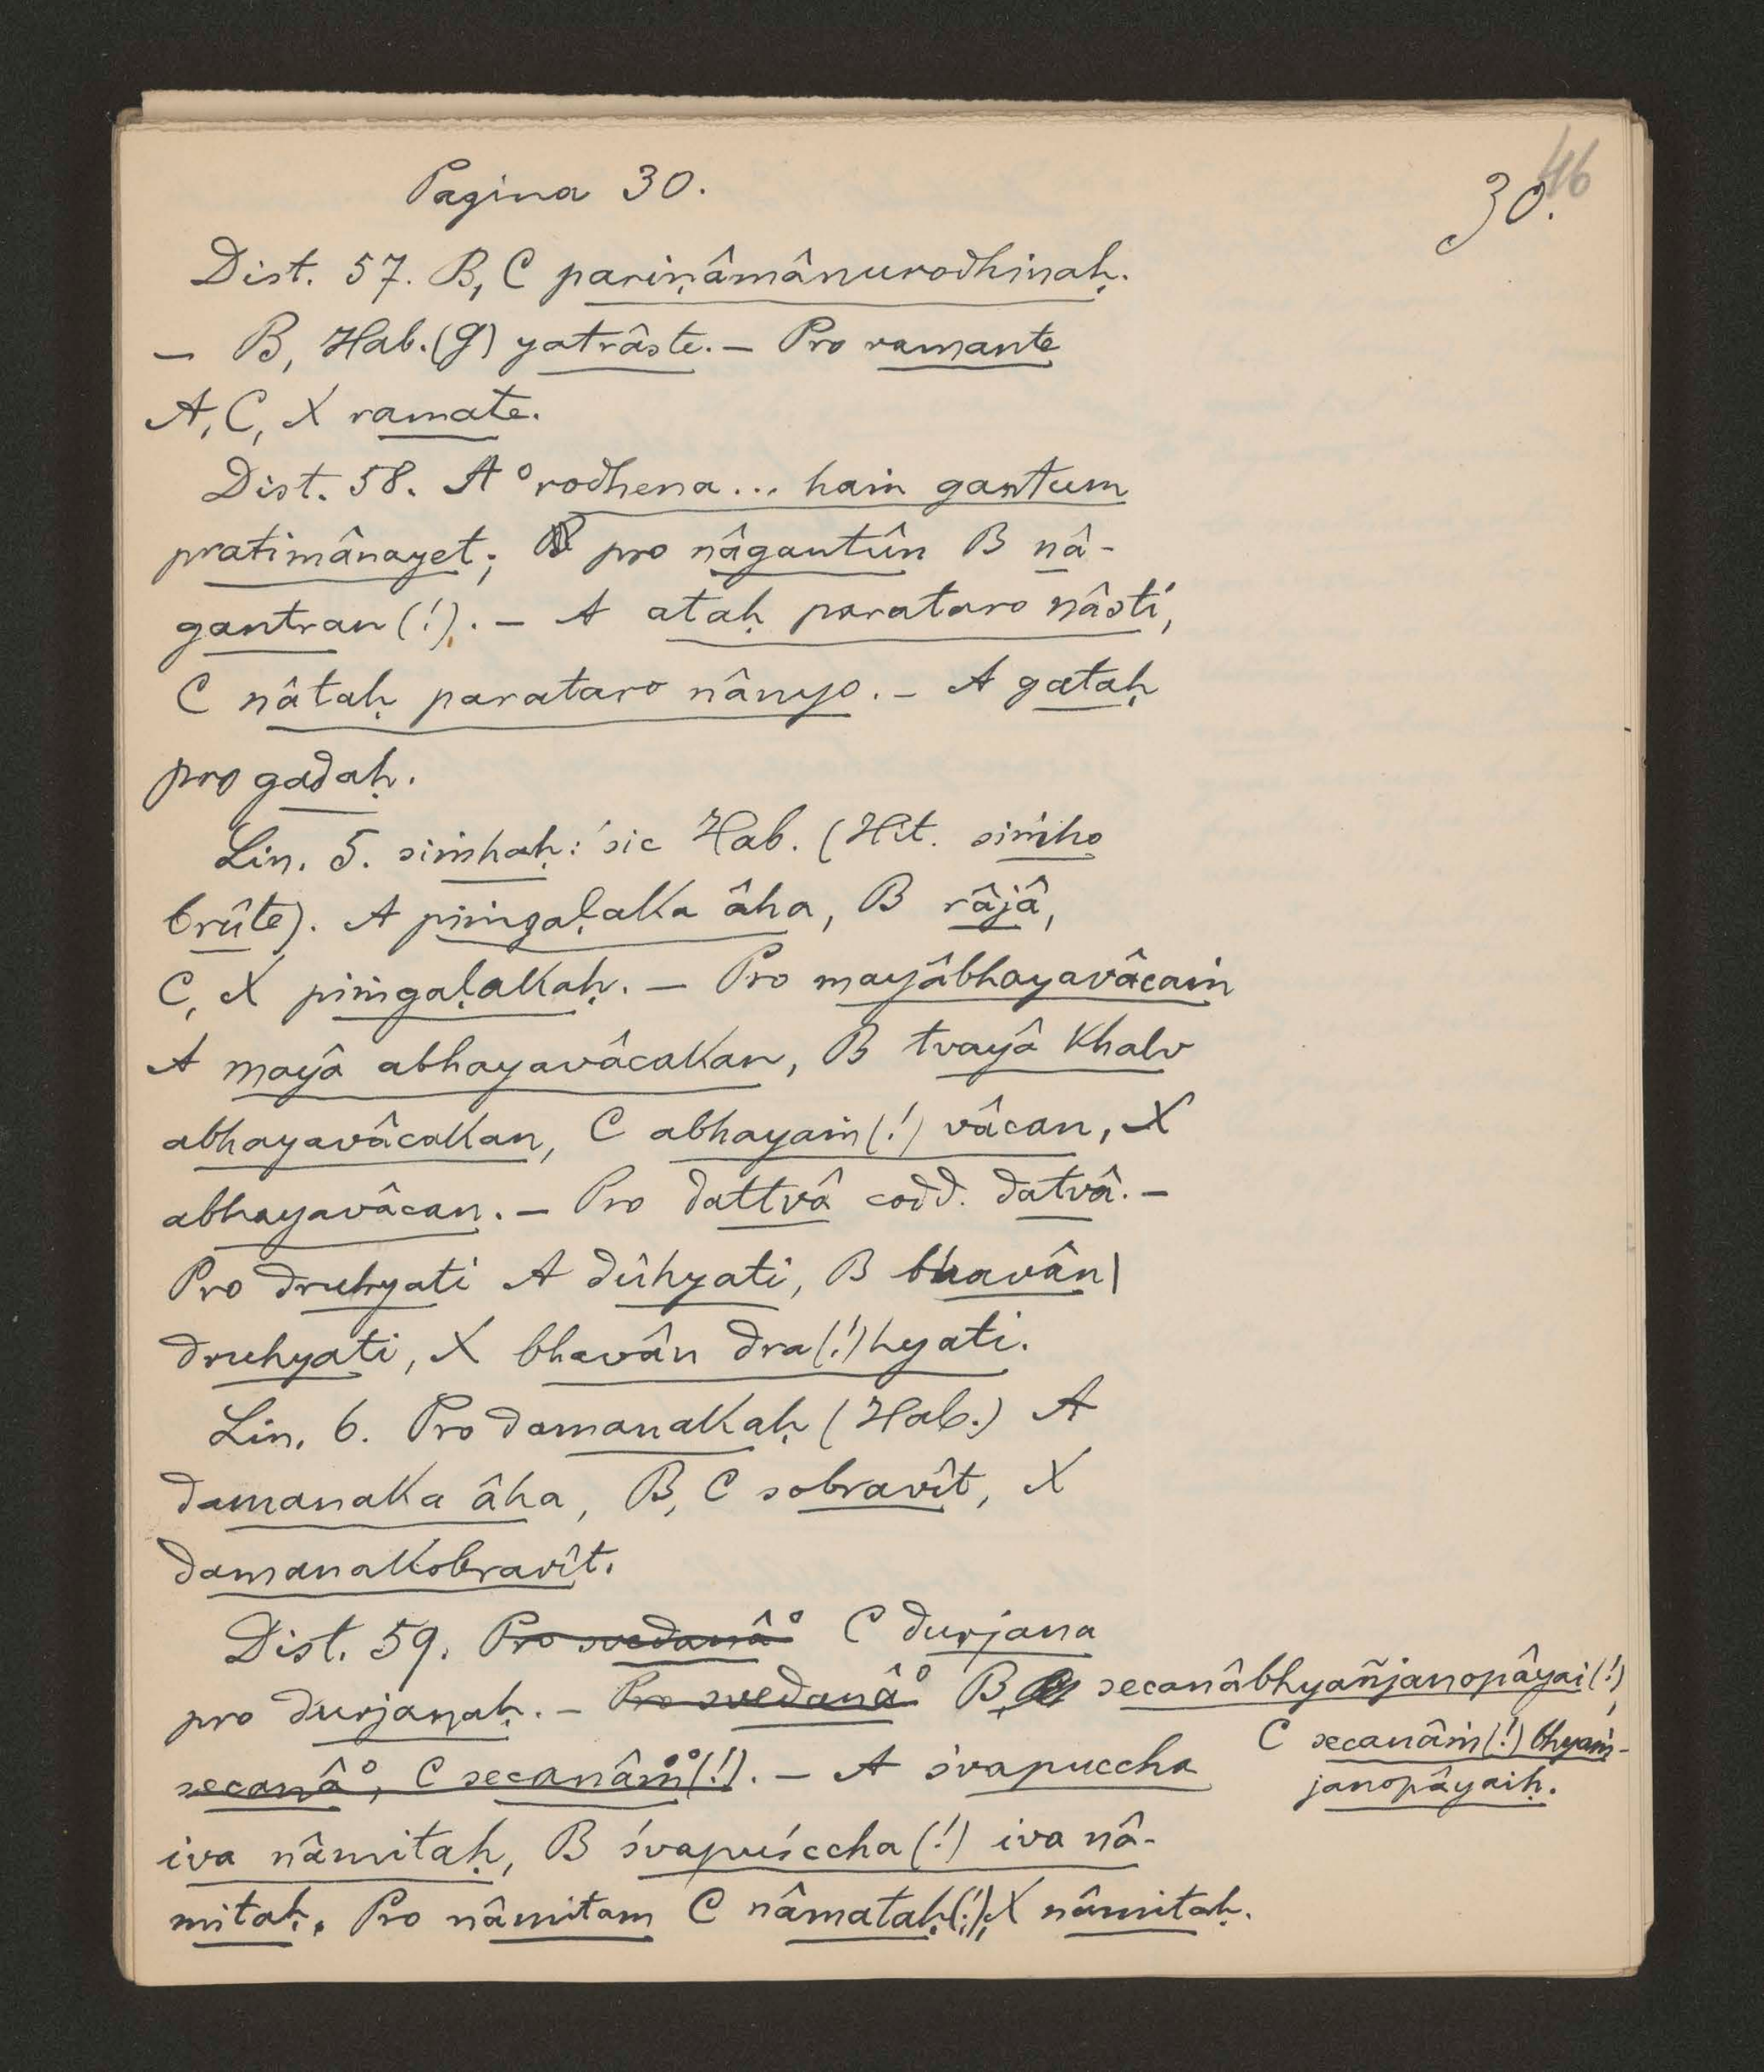 46
Pagina 30. 30.
Dist. 57. B, C pariṇâmânurodhinaḥ.
— B, Hab. (G) yatrâste. — Pro ramante
A, C, X ramate.
Dist. 58. A °rodhena... haṁ gantum
pratimânayet; pro nâgantûn B nâ-
gantran (!). — A ataḥ parataro nâsti,
C nâtaḥ parataro nânyo. — A gataḥ
pro gadaḥ.
Lin. 5. siṁhaḥ: sic Hab. (Hit. siṁho
brûte). A piṁgaḷaka âha, B râjâ,
C, X piṁgaḷakaḥ. — Pro mayâbhayavâcaṁ
A mayâ abhayavâcakan, B tvayâ khalv
abhayavâcakan, C abhayaṁ (!) vâcan, X
abhayavâcan. — Pro dattvâ codd. datvâ. —
Pro druhyati A dûhyati, B bhavân |
druhyati, X bhavân dra(!)hyati.
Lin. 6. Pro damanakaḥ (Hab.) A
damanaka âha, B, C sobravît, X
damanakobravît.
Dist. 59. Pro svedanâ° C durjana
pro durjanaḥ. — Pro svedanâ° B secanâbhyañjanopâyai (!),
C secanâṁ (!) bhyaṁ-
janopâyaiḥ.
secanâ°, C secanâṁ° (!). — A śvapuccha
iva nâmitaḥ, B śvapuśccha (!) iva nâ-
mitaḥ. Pro nâmitam C nâmataḥ (!), X nâmitaḥ.